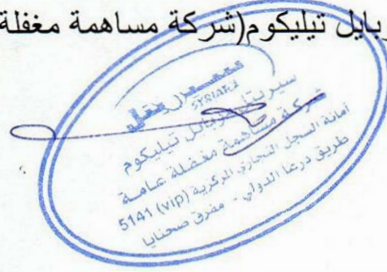 ربايل تيليكوم(شركة مساهمة مغفلة
SYRIATEL
سيريتل موبايل تيليكوم
شركة مساهمة مغفلة عامة
أمانة السجل التجاري المركزية (vip) 5141
طريق درعا الدولي - مفرق صحنايا